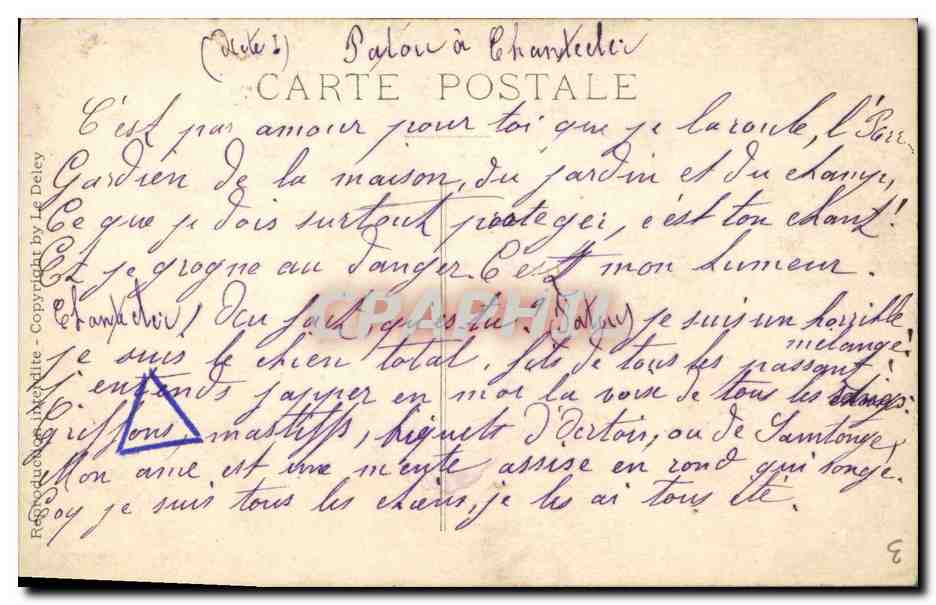 (Acte I) Patou à Chantecler
CARTE POSTALE
C'est par amour pour toi que je la route, l'
Gardien de la maison, du jardin et du champ,
Ce que je dois surtout proteger, c'est ton chant!
Et je grogne au danger. C'est mon humeur.
Chantecler! Au fait qu'es tu? (Patou) je suis un horrible
melange!
je suis le chien total, fils de tous les passants!
j'entends japper en moi la voix de tous les
Griffons, mastiffs, briquets d'Artois, ou de Saintonge,
Mon ame est une meute assise en rond qui songe.
Coq je suis tous les chiens, je les ai tous été.
Reproduction interdite - Copyright by Le Deley
CPAPHIL
3